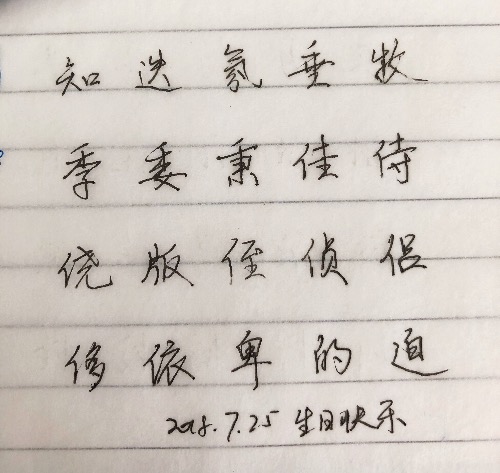 知迭氛垂牧
季委秉佳侍
侥版侄侦侣
侈依卑的迫
2018.7.25 生日快乐